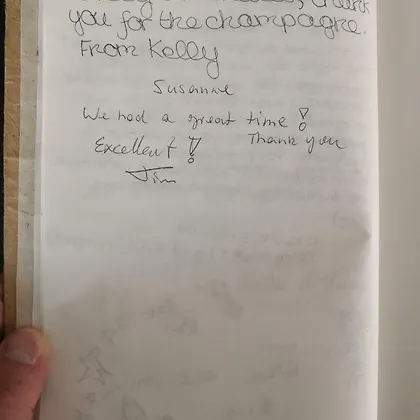 you for the champagne.
From Kelly
Susanne
We had a great time!
Excellent! Thank you
Jim